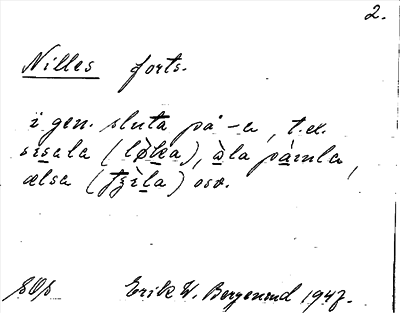 2.
Nilles forts.
i gen. sluta på -a, t.ex.
sisala (løka), àla pàmla,
ælsa (fzìla) osv.
SOp Erik W. Bergenrud 1947.